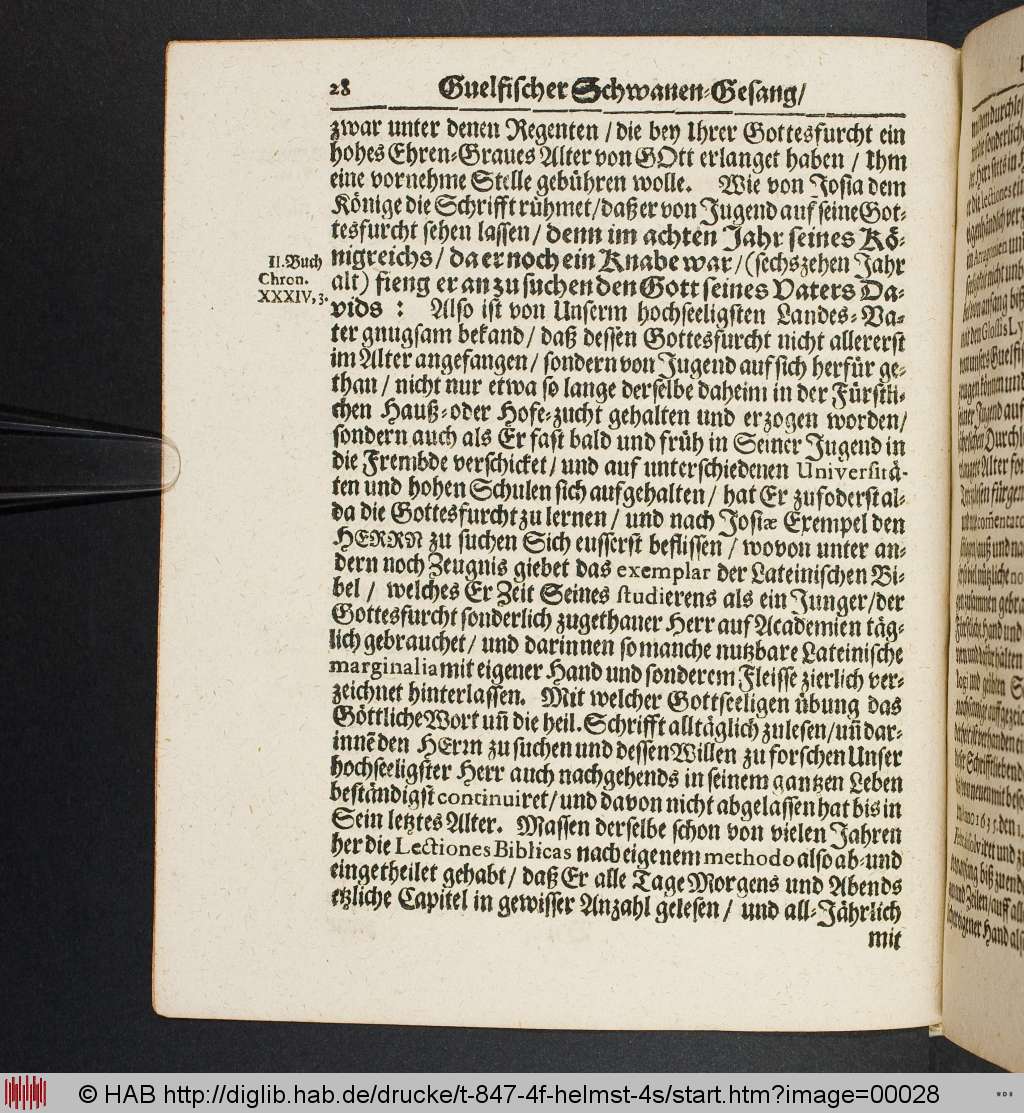 28 Guelfischer Schwanen-Gesang/
zwar unter denen Regenten / die bey Ihrer Gottesfurcht ein
hohes Ehren-Graues Alter von GOtt erlanget haben / Ihm
eine vornehme Stelle gebühren wolle. Wie von Josia dem
Könige die Schrifft rühmet/ daß er von Jugend auf seine Got-
tesfurcht sehen lassen/ denn im achten Jahr seines Kö-
nigreichs/ da er noch ein Knabe war/ (sechszehen Jahr
II. Buch
Chron.
XXXIV, 3.
alt) fieng er an zu suchen den Gott seines Vaters Da-
vids : Also ist von Unserm hochseeligsten Landes-Va-
ter gnugsam bekand/ daß dessen Gottesfurcht nicht allererst
im Alter angefangen/ sondern von Jugend auf sich herfür ge-
than / nicht nur etwa so lange derselbe daheim in der Fürstli-
chen Hauß-oder Hofe-zucht gehalten und erzogen worden/
sondern auch als Er fast bald und früh in Seiner Jugend in
die Frembde verschicket/ und auf unterschiedenen Universitä-
ten und hohen Schulen sich aufgehalten / hat Er zufoderst al-
da die Gottesfurcht zu lernen / und nach Josiæ Exempel den
HERRN zu suchen Sich eusserst beflissen / wovon unter an-
dern noch Zeugnis giebet das exemplar der Lateinischen Bi-
bel / welches Er Zeit Seines studierens als ein Junger/der
Gottesfurcht sonderlich zugethaner Herr auf Academien täg-
lich gebrauchet/ und darinnen so manche nutzbare Lateinische
marginalia mit eigener Hand und sonderem Fleisse zierlich ver-
zeichnet hinterlassen. Mit welcher Gottseeligen übung das
Göttliche Wort uñ die heil. Schrifft alltäglich zulesen/uñ dar-
innē den HErrn zu suchen und dessen Willen zu forschen Unser
hochseeligster Herr auch nachgehends in seinem gantzen Leben
beständigst continuiret/ und davon nicht abgelassen hat bis in
Sein letztes Alter. Massen derselbe schon von vielen Jahren
her die Lectiones Biblicas nach eigenem methodo also ab-und
eingetheilet gehabt/ daß Er alle Tage Morgens und Abends
etzliche Capitel in gewisser Anzahl gelesen/ und all-Jährlich
mit
© HAB http://diglib.hab.de/drucke/t-847-4f-helmst-4s/start.htm?image=00028